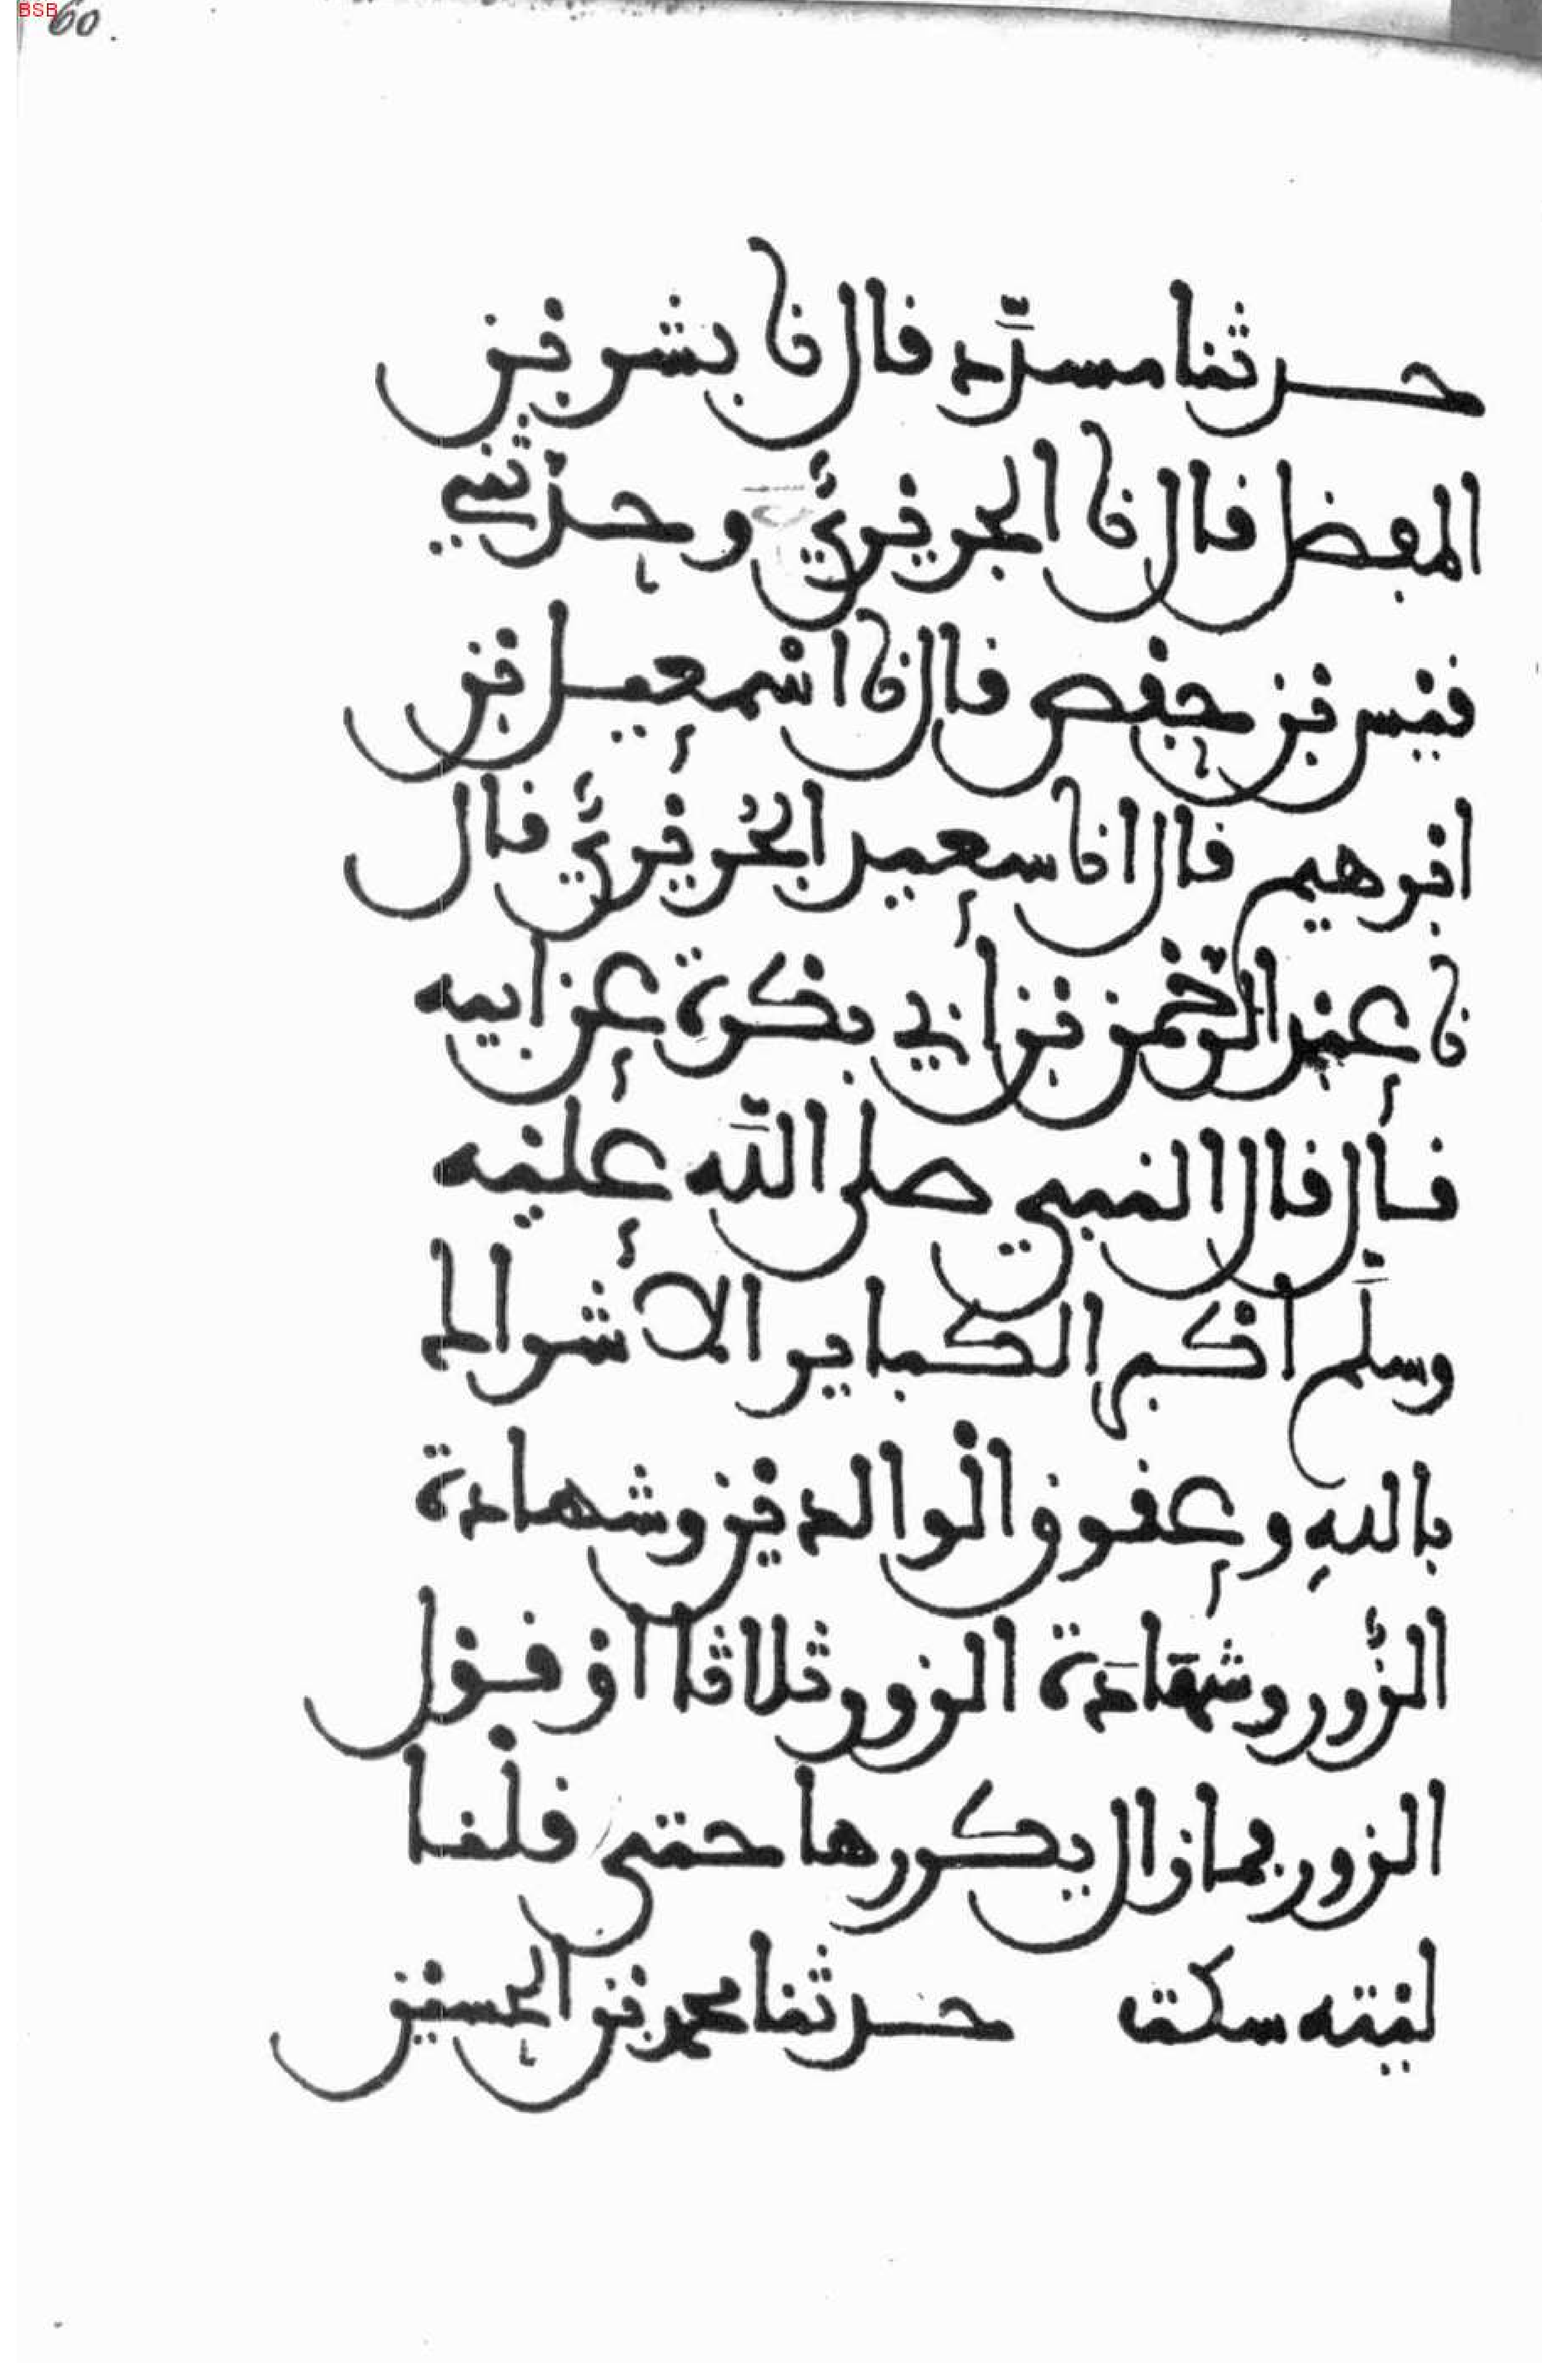 BSB 60.
حدثنا مسدّد قال نا بشر بن
المفضل قال نا الجريريُّ وحدثني
قيس بن حفص قال نا اسمعيل بن
ابرهيم قال انا سعيد الجُريريُّ قال
نا عبد الرحمن بن ابي بكرة عن ابيه
قال قال النبي صلى اللّه عليه
وسلّم اكبر الكباير الاشراك
باللهِ وعقوق الوالدين وشهادة
الزُّور وشهَادَة الزور ثلاثا اوْ قول
الزور فما زال يكررها حتى قلنا
ليته سكت حدثنا محمد بن الحسين